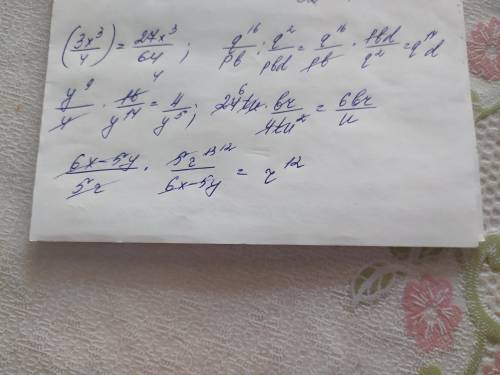 (3x³/4) = 27x³/64; q¹⁶/pb : q²/pbd = q¹⁶/pb · pbd/q² = q¹⁴d
y⁹/4 · 16/y¹⁴ = 4/y⁵; 24⁶tu · br/4tu² = 6br/u
6x-5y/5z · 5z¹³ ¹²/6x-5y = z¹²